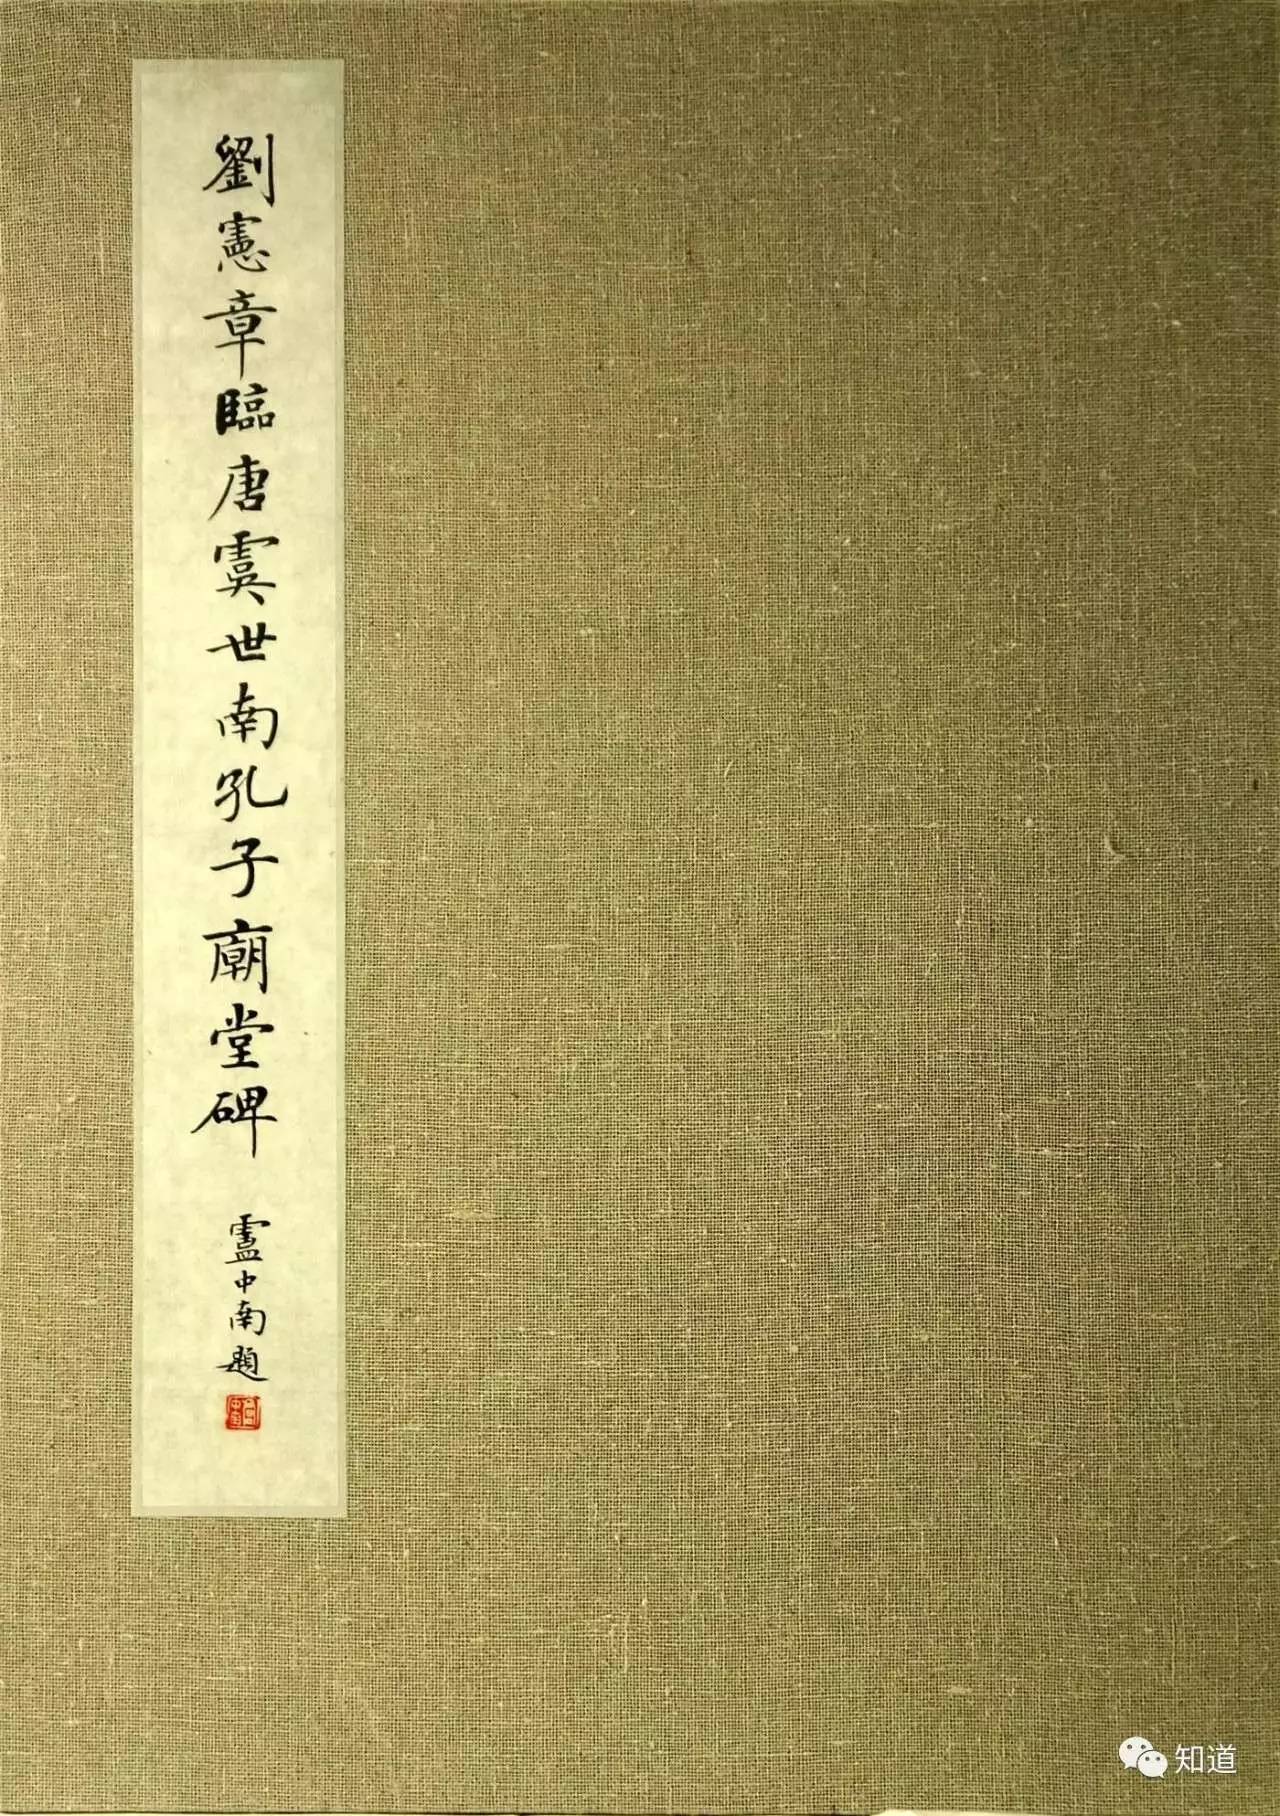 劉憲章臨唐虞世南孔子廟堂碑
盧中南題
知道